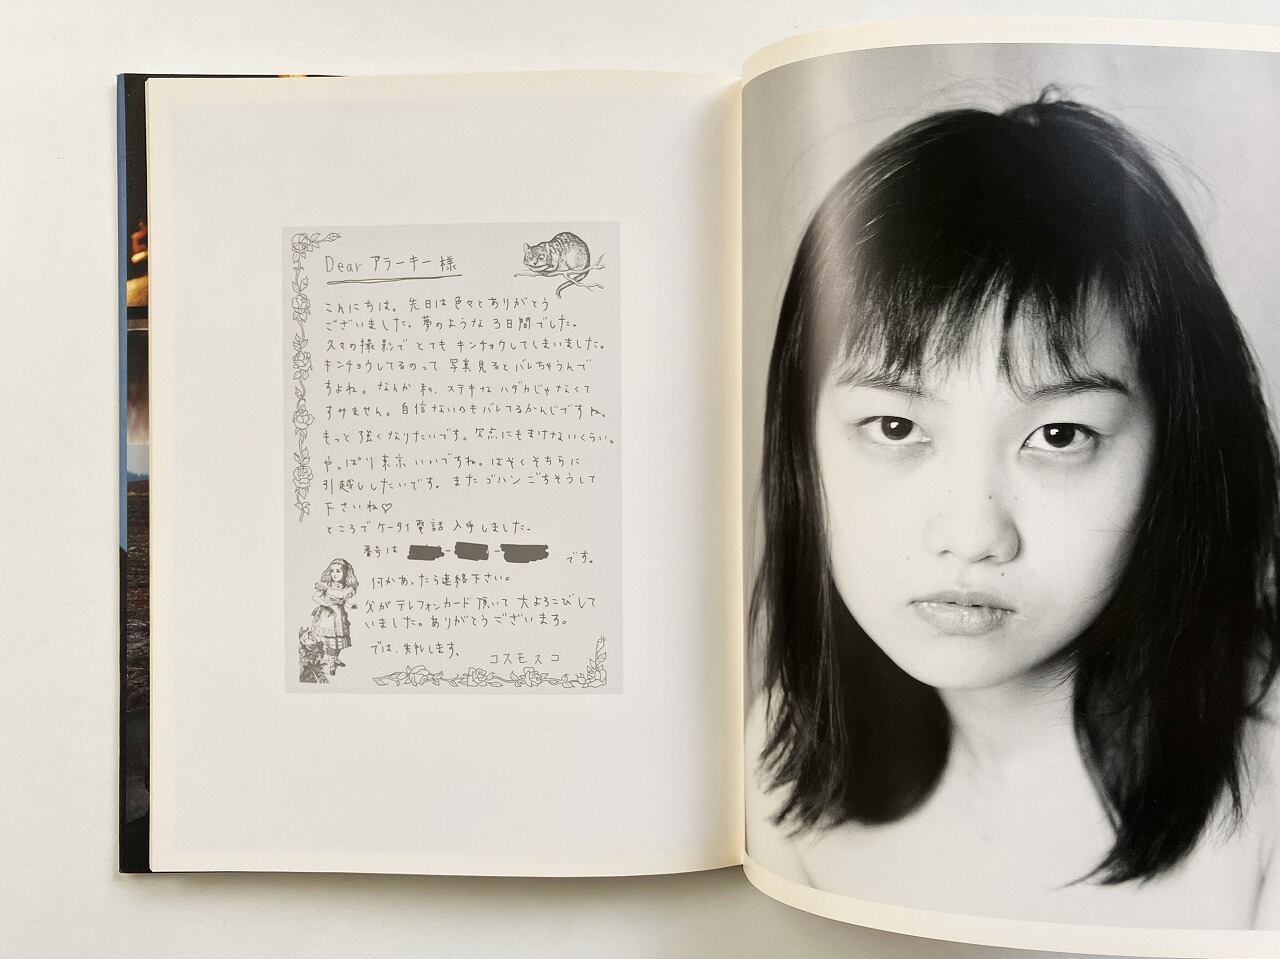 Dear アラーキー様
こんにちは。先日は色々とありがとう
ございました。夢のような3日間でした。
久々の撮影でとてもキンチョウしてしまいました。
キンチョウしてるのって写真見るとバレちゃうんで
すよね。なんか私、ステキなハダカじゃなくて
すみません。自信ないのもバレてるかんじですね。
もっと強くなりたいです。欠点にもまけないくらい。
やっぱり東京いいですね。はやくそちらに
引越ししたいです。またゴハンごちそうして
下さいね♡
ところでケータイ電話入手しました。
番号は - - です。
何かあったら連絡下さい。
父がテレフォンカード頂いて大よろこびして
いました。ありがとうございます。
では、失礼します。
コスモスコ